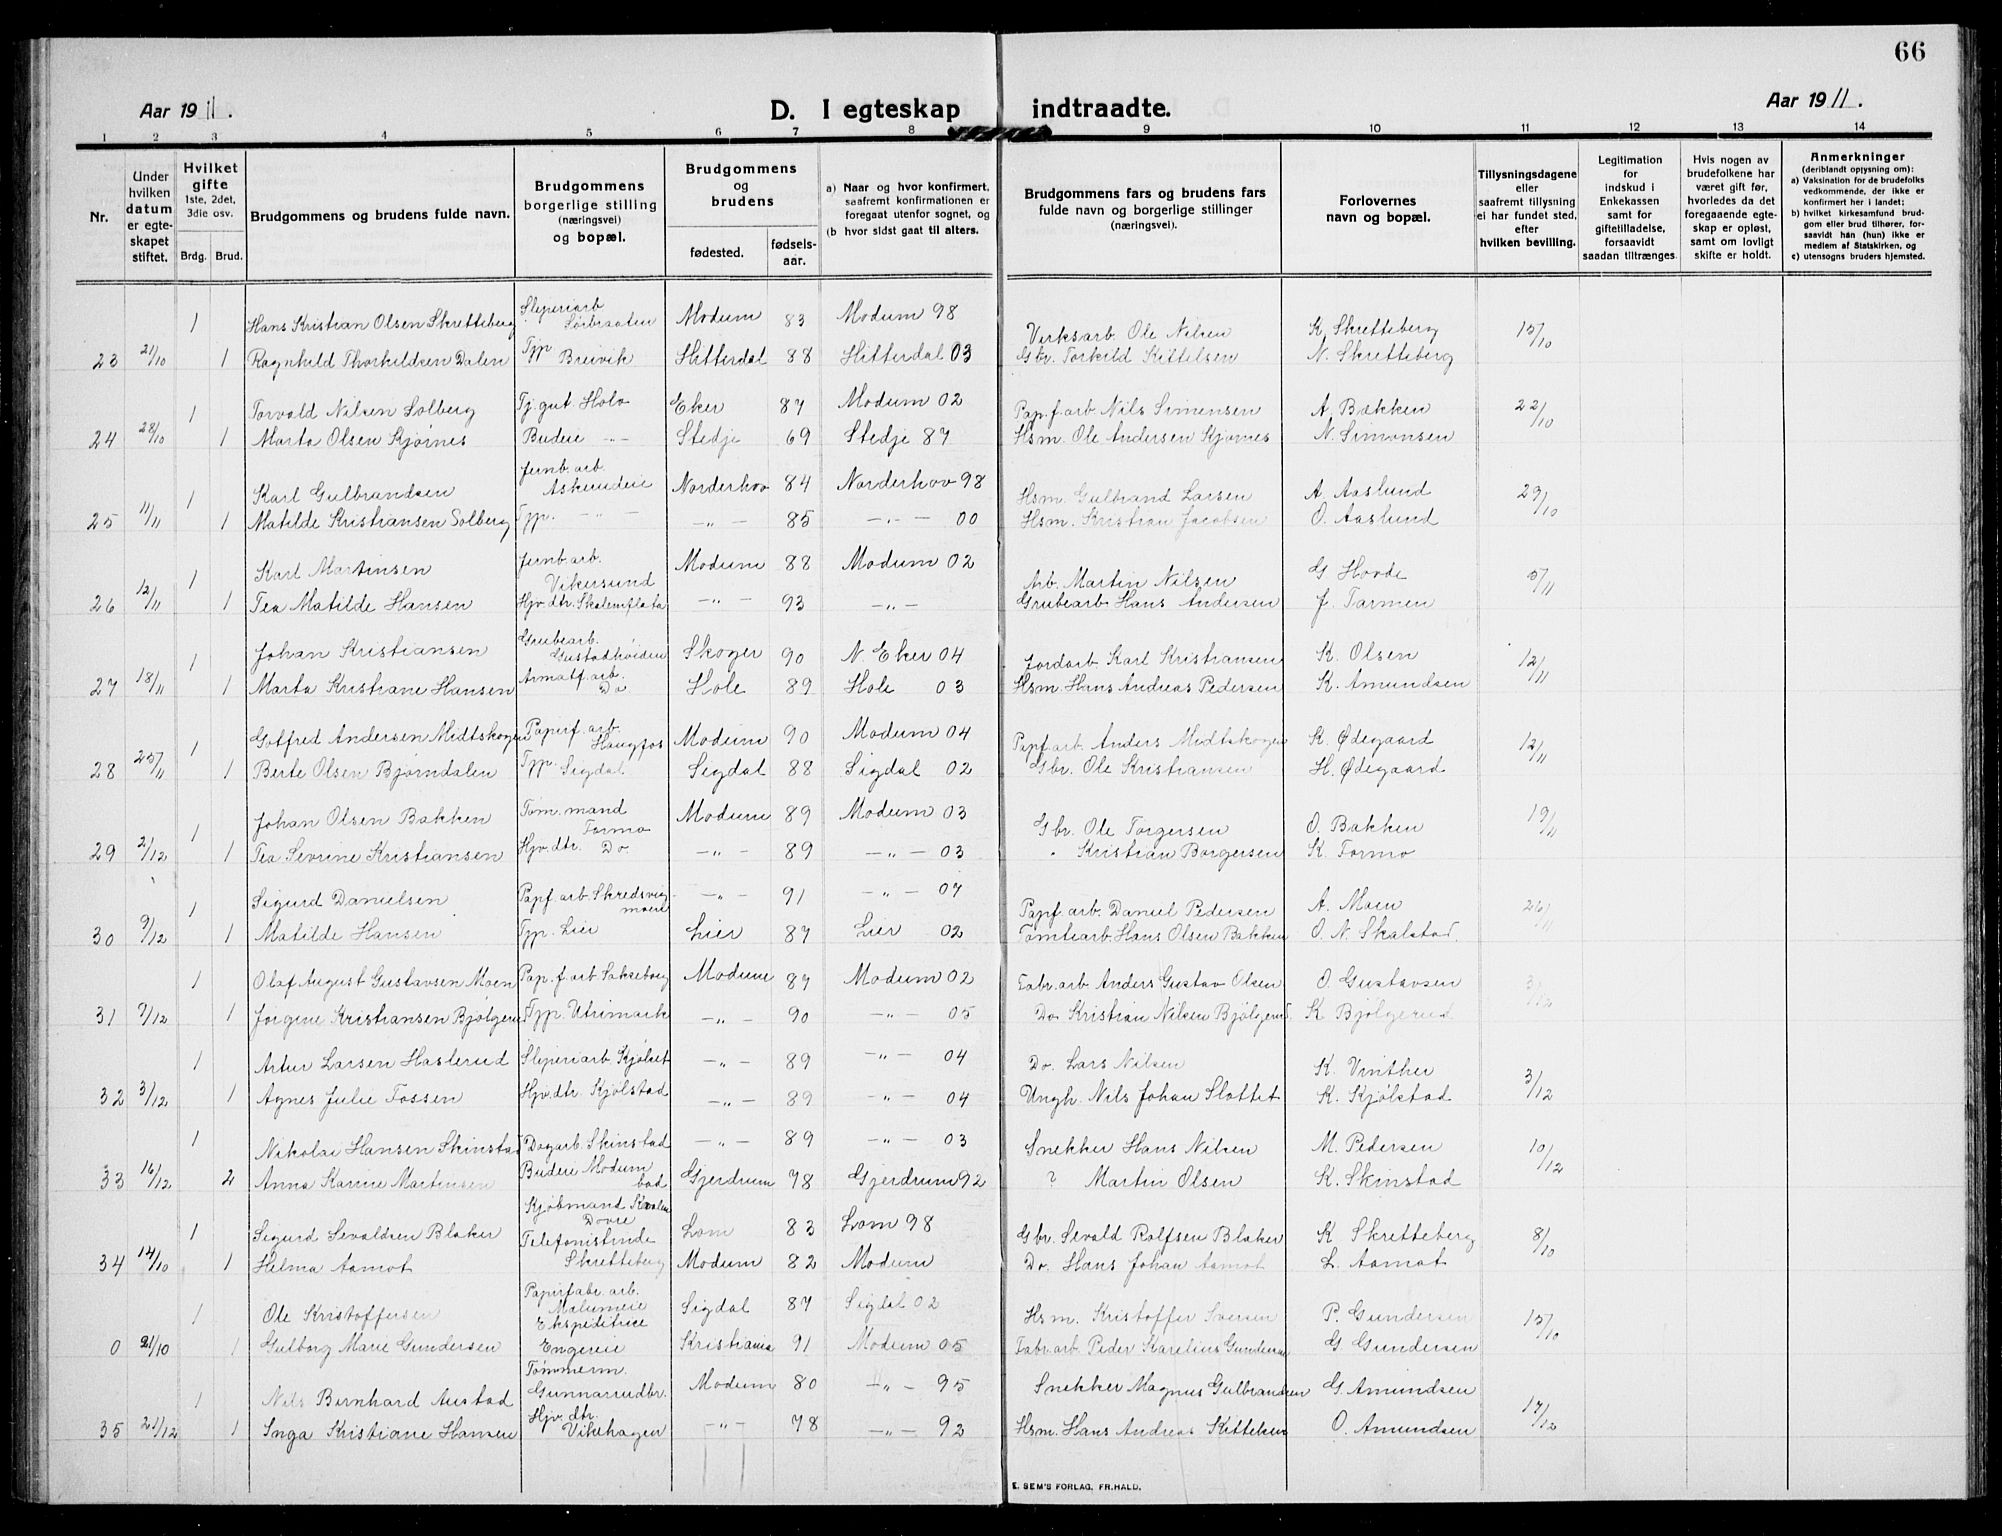 66
Aar 1911.
D. I egteskap indtraadte.
Aar 1911.
1 2 3 4 5 6 7 8 9 10 11 12 13 14
Nr.
Under hvilken datum er egteskapet stiftet.
Hvilket gifte 1ste, 2det, 3die osv.
Brdg. Brud.
Brudgommens og brudens fulde navn.
Brudgommens borgerlige stilling (næringsvei) og bopæl.
Brudgommens og brudens
fødested. fødselsaar.
a) Naar og hvor konfirmert, saafremt konfirmationen er foregaat utenfor sognet, og
(b hvor sidst gaat til alters.
Brudgommens fars og brudens fars fulde navn og borgerlige stillinger (næringsvei).
Forlovernes navn og bopæl.
Tillysningsdagene eller saafremt tillysning ei har fundet sted, efter hvilken bevilling.
Legitimation for indskud i Enkekassen samt for giftetilladelse, forsaavidt saadan tiltrænges.
Hvis nogen av brudefolkene har været gift før, hvorledes da det foregaaende egteskap er opløst, samt om lovligt skifte er holdt.
Anmerkninger (deriblandt opysning om):
a) Vaksination for de brudefolks vedkommende, der ikke er konfirmert her i landet;
b) hvilket kirkesamfund brudgom eller brud tilhører, forsaavidt han (hun) ikke er medlem af Statskirken, og
c) utensogns bruders hjemsted.
1 Hans Kristian Olsen Skretteberg Sliperiarb Sørbraaten Modum 83 Modum 98 Virksarb. Ole Nilsen K. Skretteberg 15/10
23 21/10 1 Ragnhild Thorkildsen Dalen Tjp Breivik Hitterdal 88 Hitterdal 03 Gbr. Torkild Kittelsen N. Skretteberg
1 Torvald Nilsen Solberg Tj. gut Holo Eker 87 Modum 02 Pap.f.arb Nils Simensen A. Bækken 22/10
24 28/10 1 Marta Olsen Kjørnes Budeie -"- Stedje 69 Stedje 87 Hsm. Ole Andersen Kjørnes N. Simonsen
1 Karl Gulbrandsen Jernb. arb. Askerudeie Norderhov 84 Norderhov 98 Hsm. Gulbrand Larsen A. Aaslund 29/10
25 11/11 1 Matilde Kristiansen Solberg Tjp. - - -"- 85 -"- 00 Hsm. Kristian Jacobsen O. Aaslund
1 Karl Martinsen Jernb. arb. Vikersund Modum 88 Modum 02 Arb. Martin Nilsen G Hovde 5/11
26 12/11 1 Tea Matilde Hansen Hjv. dtr. Skalemflata -"- 93 -"- Grubearb Hans Andersen J. Tarmen
1 Johan Kristiansen Grubearb. Gustadhøiden Skoger 90 N. Eker 04 Jordarb Karl Kristiansen K. Olsen 12/11
27 18/11 1 Marta Kristiane Hansen Armatf. arb. Do Hole 89 Hole 03 Hsm. Hans Andreas Pedersen K. Amundsen
1 Gotfred Andersen Midtskogen Papirf. arb. Haugfos Modum 90 Modum 04 Papf. arb. Anders Midtskogen K. Ødegaard 12/11
28 25/11 1 Berte Olsen Bjørndalen Tjp. Sigdal Sigdal 88 Sigdal 02 Gbr. Ole Kristiansen H. Ødegaard
1 Johan Olsen Bakken Tøm. mand Formo Modum 89 Modum 03 Gbr. Ole Torgersen O. Bakken 19/11
29 2/12 1 Tea Sevrine Kristiansen Hjv. dtr. Do -"- 89 -"- 03 " Kristian Borgersen K. Formo
1 Sigurd Danielsen Papf. arb. Skredsvigmoen -"- 91 -"- 07 Papf. arb. Daniel Pedersen A. Moen 26/11
30 9/12 1 Matilde Hansen Tjp. Lier Lier 87 Lier 02 Tomtearb. Hans Olsen Bakken O. N. Skalstad.
1 Olaf August Gustavsen Moen Pap. f. arb Modum 87 Modum 02 Fabr. arb Anders Gustav Olsen O. Gustavsen 3/12
31 9/12 1 Jorgine Kristiansen Bjølgerud Tjp. Utrimark -"- 90 -"- 05 Do Kristian Nilsen Bjølgerud. K Bjølgerud
1 Artur Larsen Haslerud Sliperiarb -"- 89 -"- 04 Do. Lars Nilsen K. Vinther 3/12
32 3/12 1 Agnes Julie Fossen Hjv. dtr. Kjølstad -"- 89 -"- 04 Ungk. Nils Johan Slottet K. Kjølstad
1 Nikolai Hansen Skinstad Dagarb. Skinstad -"- 89 -"- 03 Snekker Hans Nilsen M. Pedersen 10/12
33 16/12 2 Anna Karine Martinsen Budeie Modum bad Gjerdrum 78 Gjerdrum 92 ? Martin Olsen K. Skinstad
1 Sigurd Sevaldsen Blaker Kjøbmand Dovre Lom 83 Lom 98 Gbr. Sevald Rolfsen Blaker K Skretteberg 8/10
34 14/10 1 Helma Aamot Telefonistinde Skretteberg Modum 82 Modum Do. Hans Johan Aamot L. Aamot
1 Ole Kristoffersen Papirfabr. arb. Malumeie Sigdal 87 Sigdal 02 Hsm. Kristoffer Iversen P. Gundersen 15/10
0 21/10 1 Gulborg Marie Gundersen Ekspeditrice Engereie Kristiania 91 Modum 05 Fabr. arb. Peder Karelius Gundersen G Gundersen
1 Nils Bernhard Austad Tømmerm. Gunnarrudbr. Modum 80 -"- 95 Snekker Magnus Gulbrandsen G. Amundsen 17/12
35 21/12 1 Inga Kristiane Hansen Hjv. dtr. Vikehagen -"- 78 -"- 92 Hsm. Hans Andreas Kittelsen O. Amundsen
E. SEM'S FORLAG, FR.HALD.